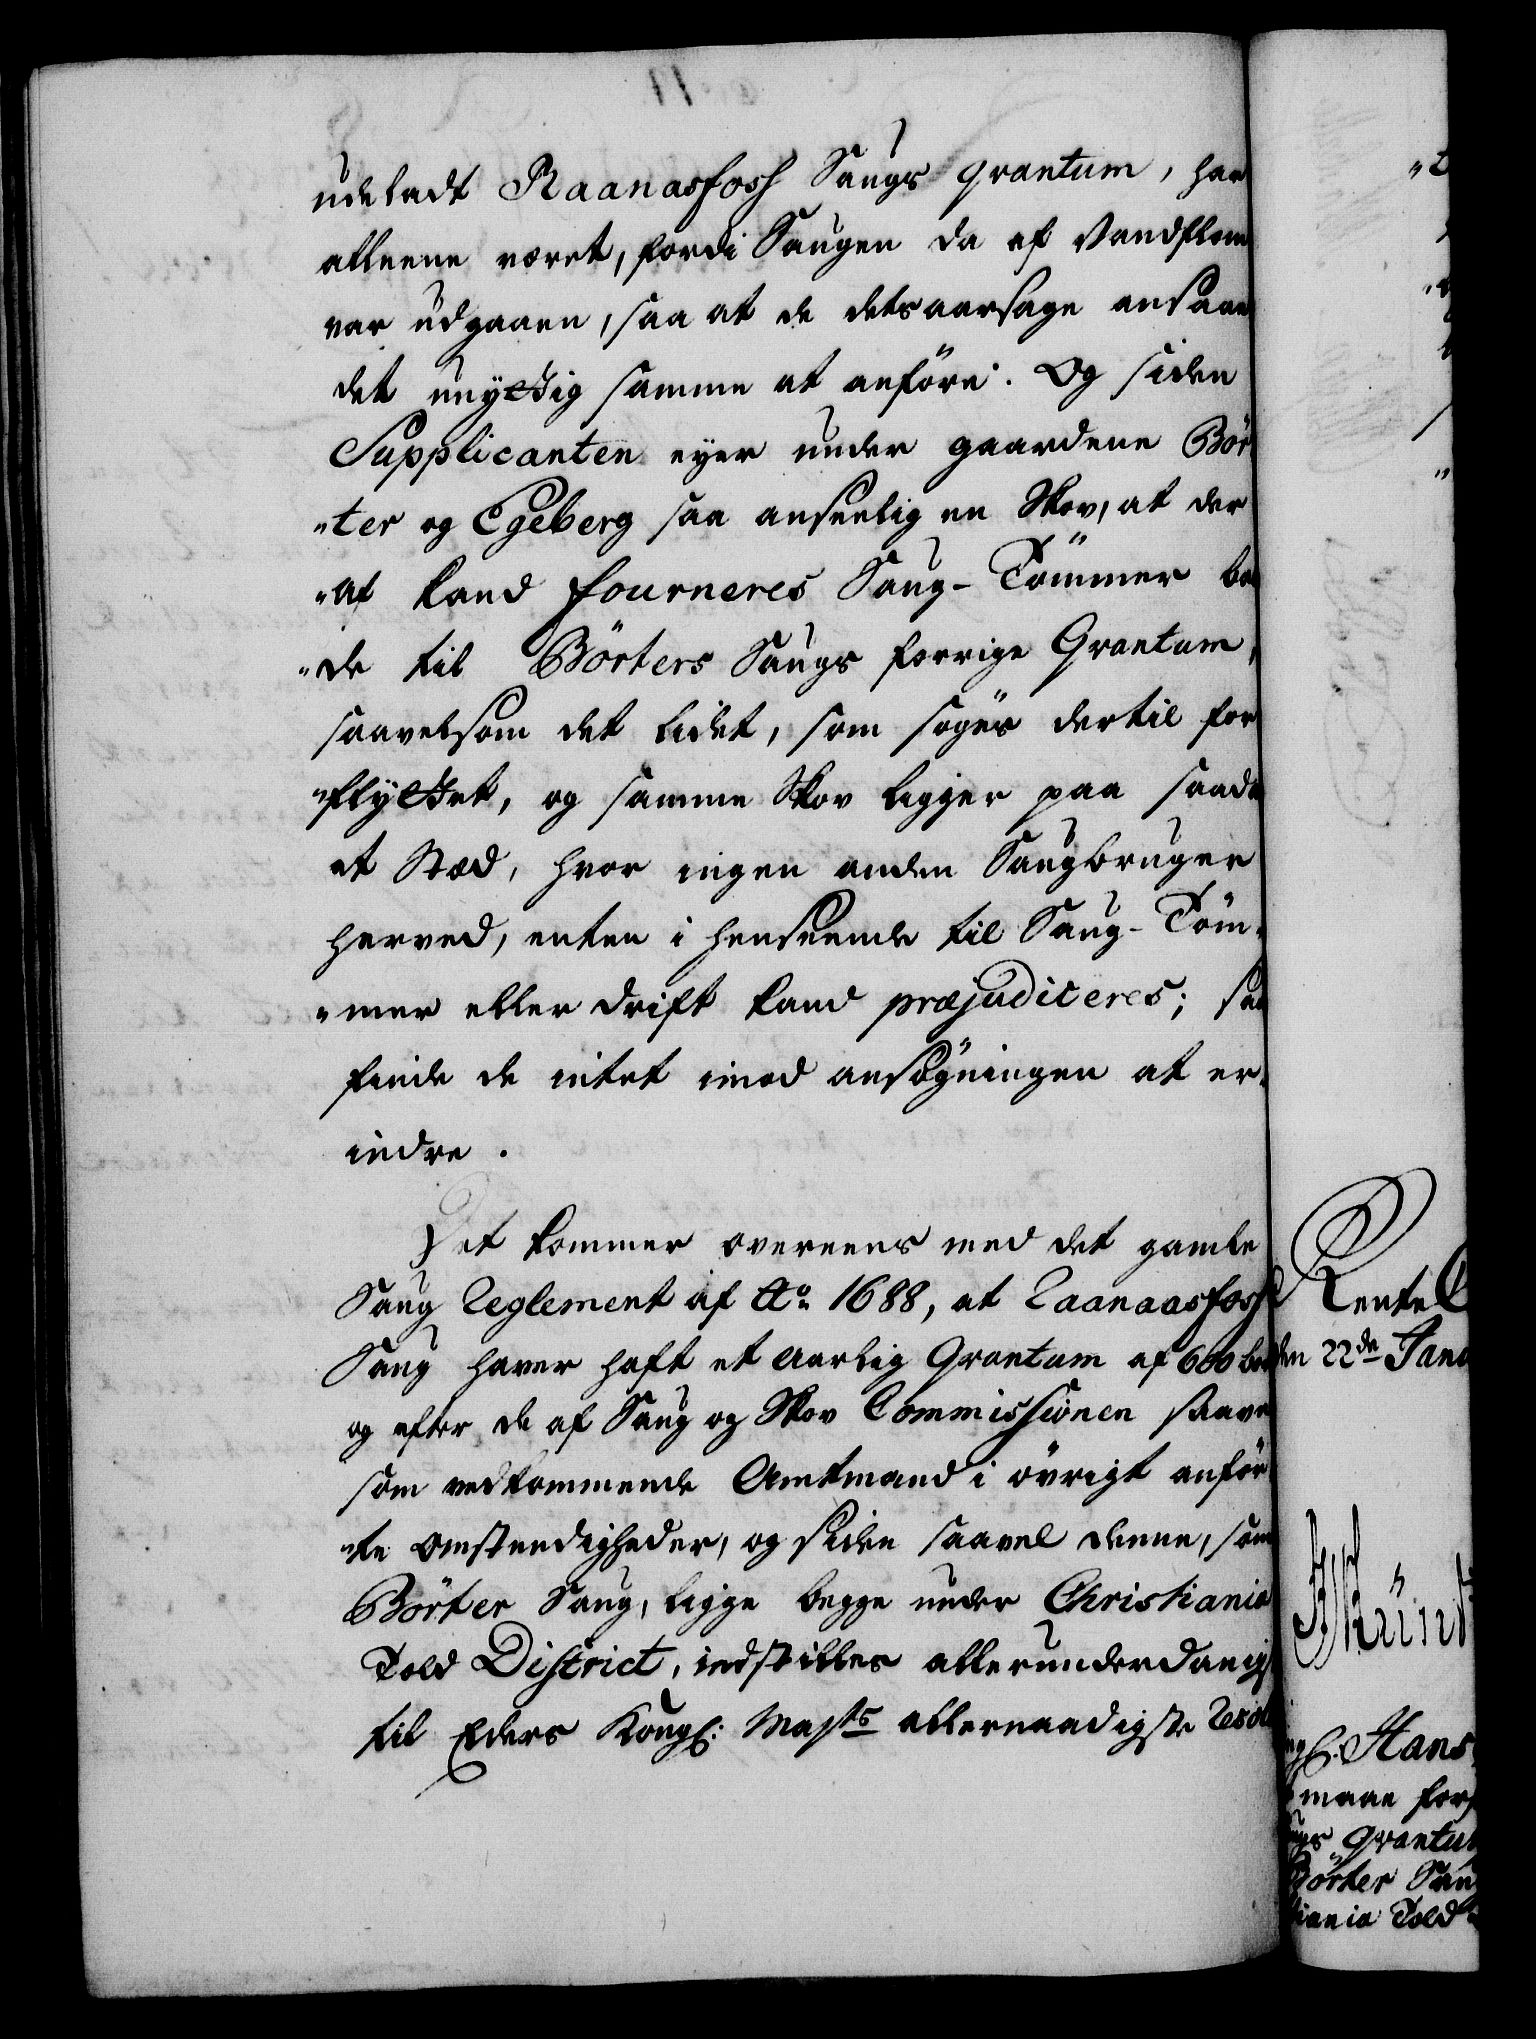 udeladt Raanasfoss Saugs Qvantum, har
alleene været, fordi Saugen da af Vandflom
var udgaaen, saa at de dets aarsage ansaae
det unyttig samme at anföre. Og siden
Supplicanten eyer under gaardene Bör
"ter og Egeberg saa anseelig en Skov, at der
"af kand fourneres Saug-Tömmer baa
"de til Börters Saugs forrige Qvantum,
saavelsom det lidet, som søges dertil for
"flyttet, og samme Skov ligger paa saada
et Stæd, hvor ingen anden Saugbruger
herved, enten i henseende til Saug-Töm-
"mer eller drift kand præjudiceres; saa
finde de intet imod ansøgningen at er-
indre.
Det kommer overeens med det gamle
Saug Reglement af Ao 1688, at Raanaasfoss
Saug haver haft et aarlig Qvantum af 600 bor
og efter de af Saug og Skov Commissionen saavel
som vedkommende Amtmand i övrigt anför
"te omstendigheder, og siden saavel denne, som
Börter Saug, ligge begge under Christiania
Told District, indstilles allerunderdanigst
til Eders Kongl: Majts allernaadigste Resol
Rente
den 22de Janu
Hans
maae forf
Qvantu
Börter Sau
iania Told